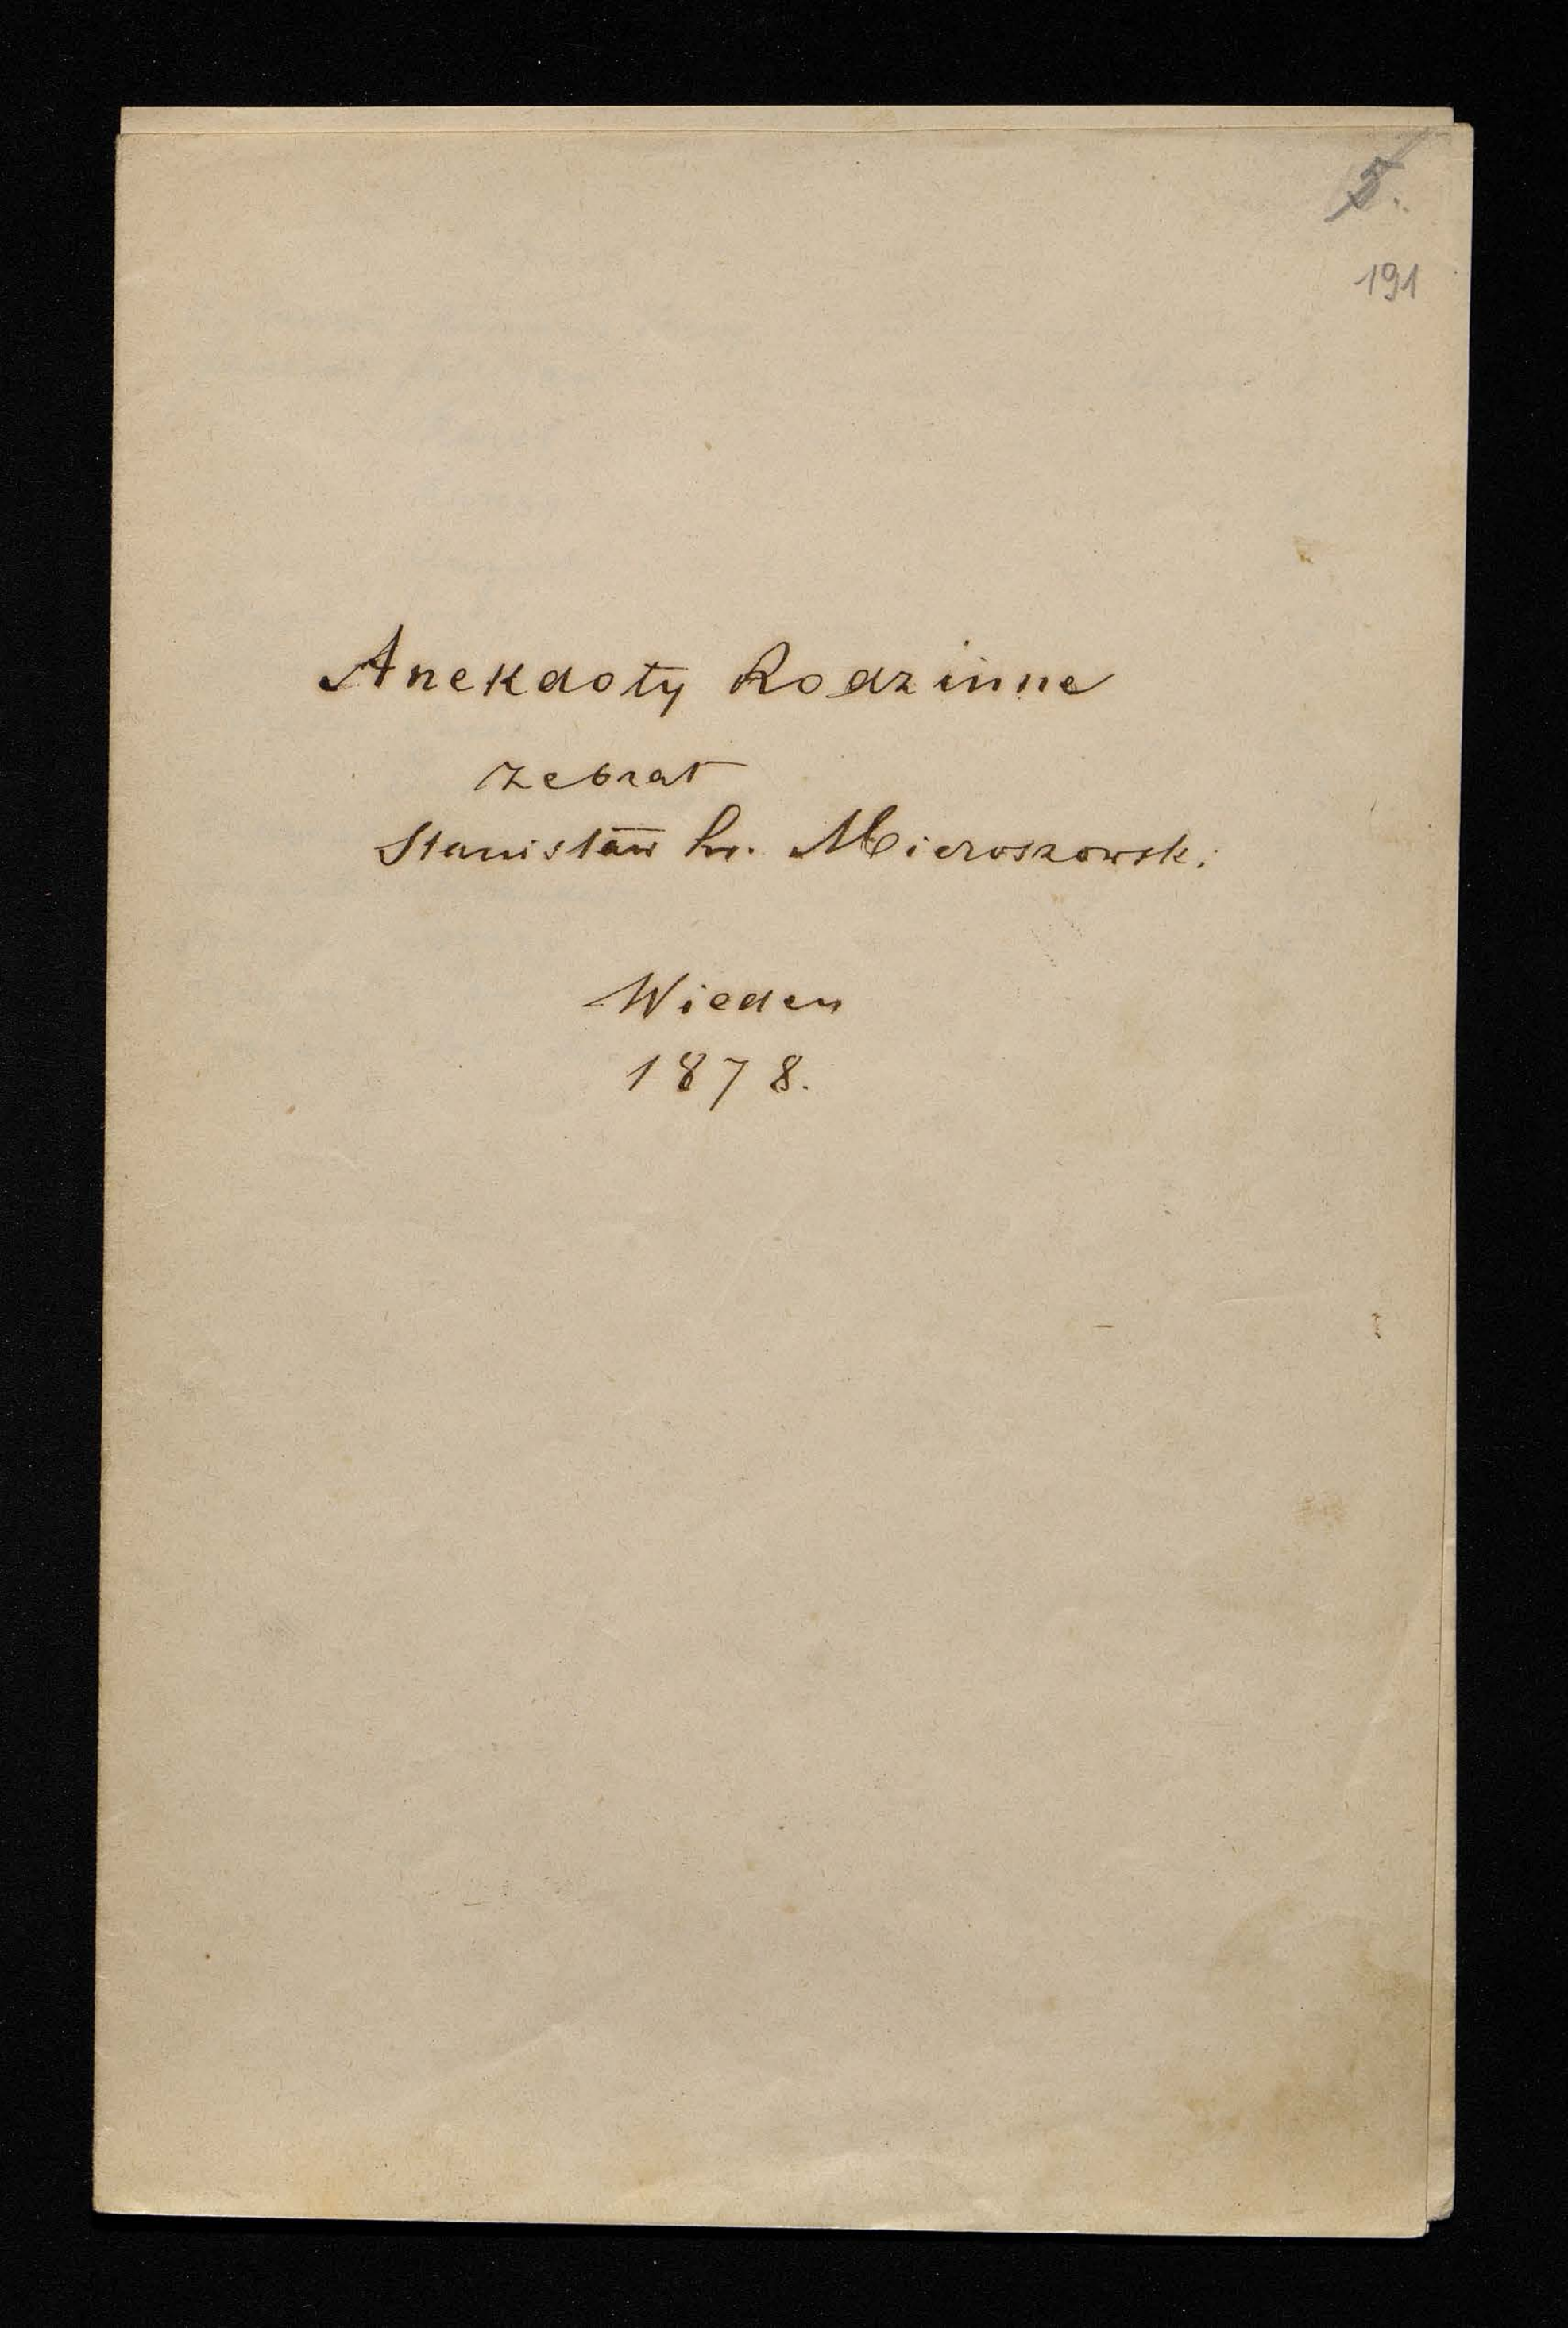 5.
191
Anekdoty Rodzinne
zebrał
Stanisław hr. Mieroszowski
Wiedeń
1878.